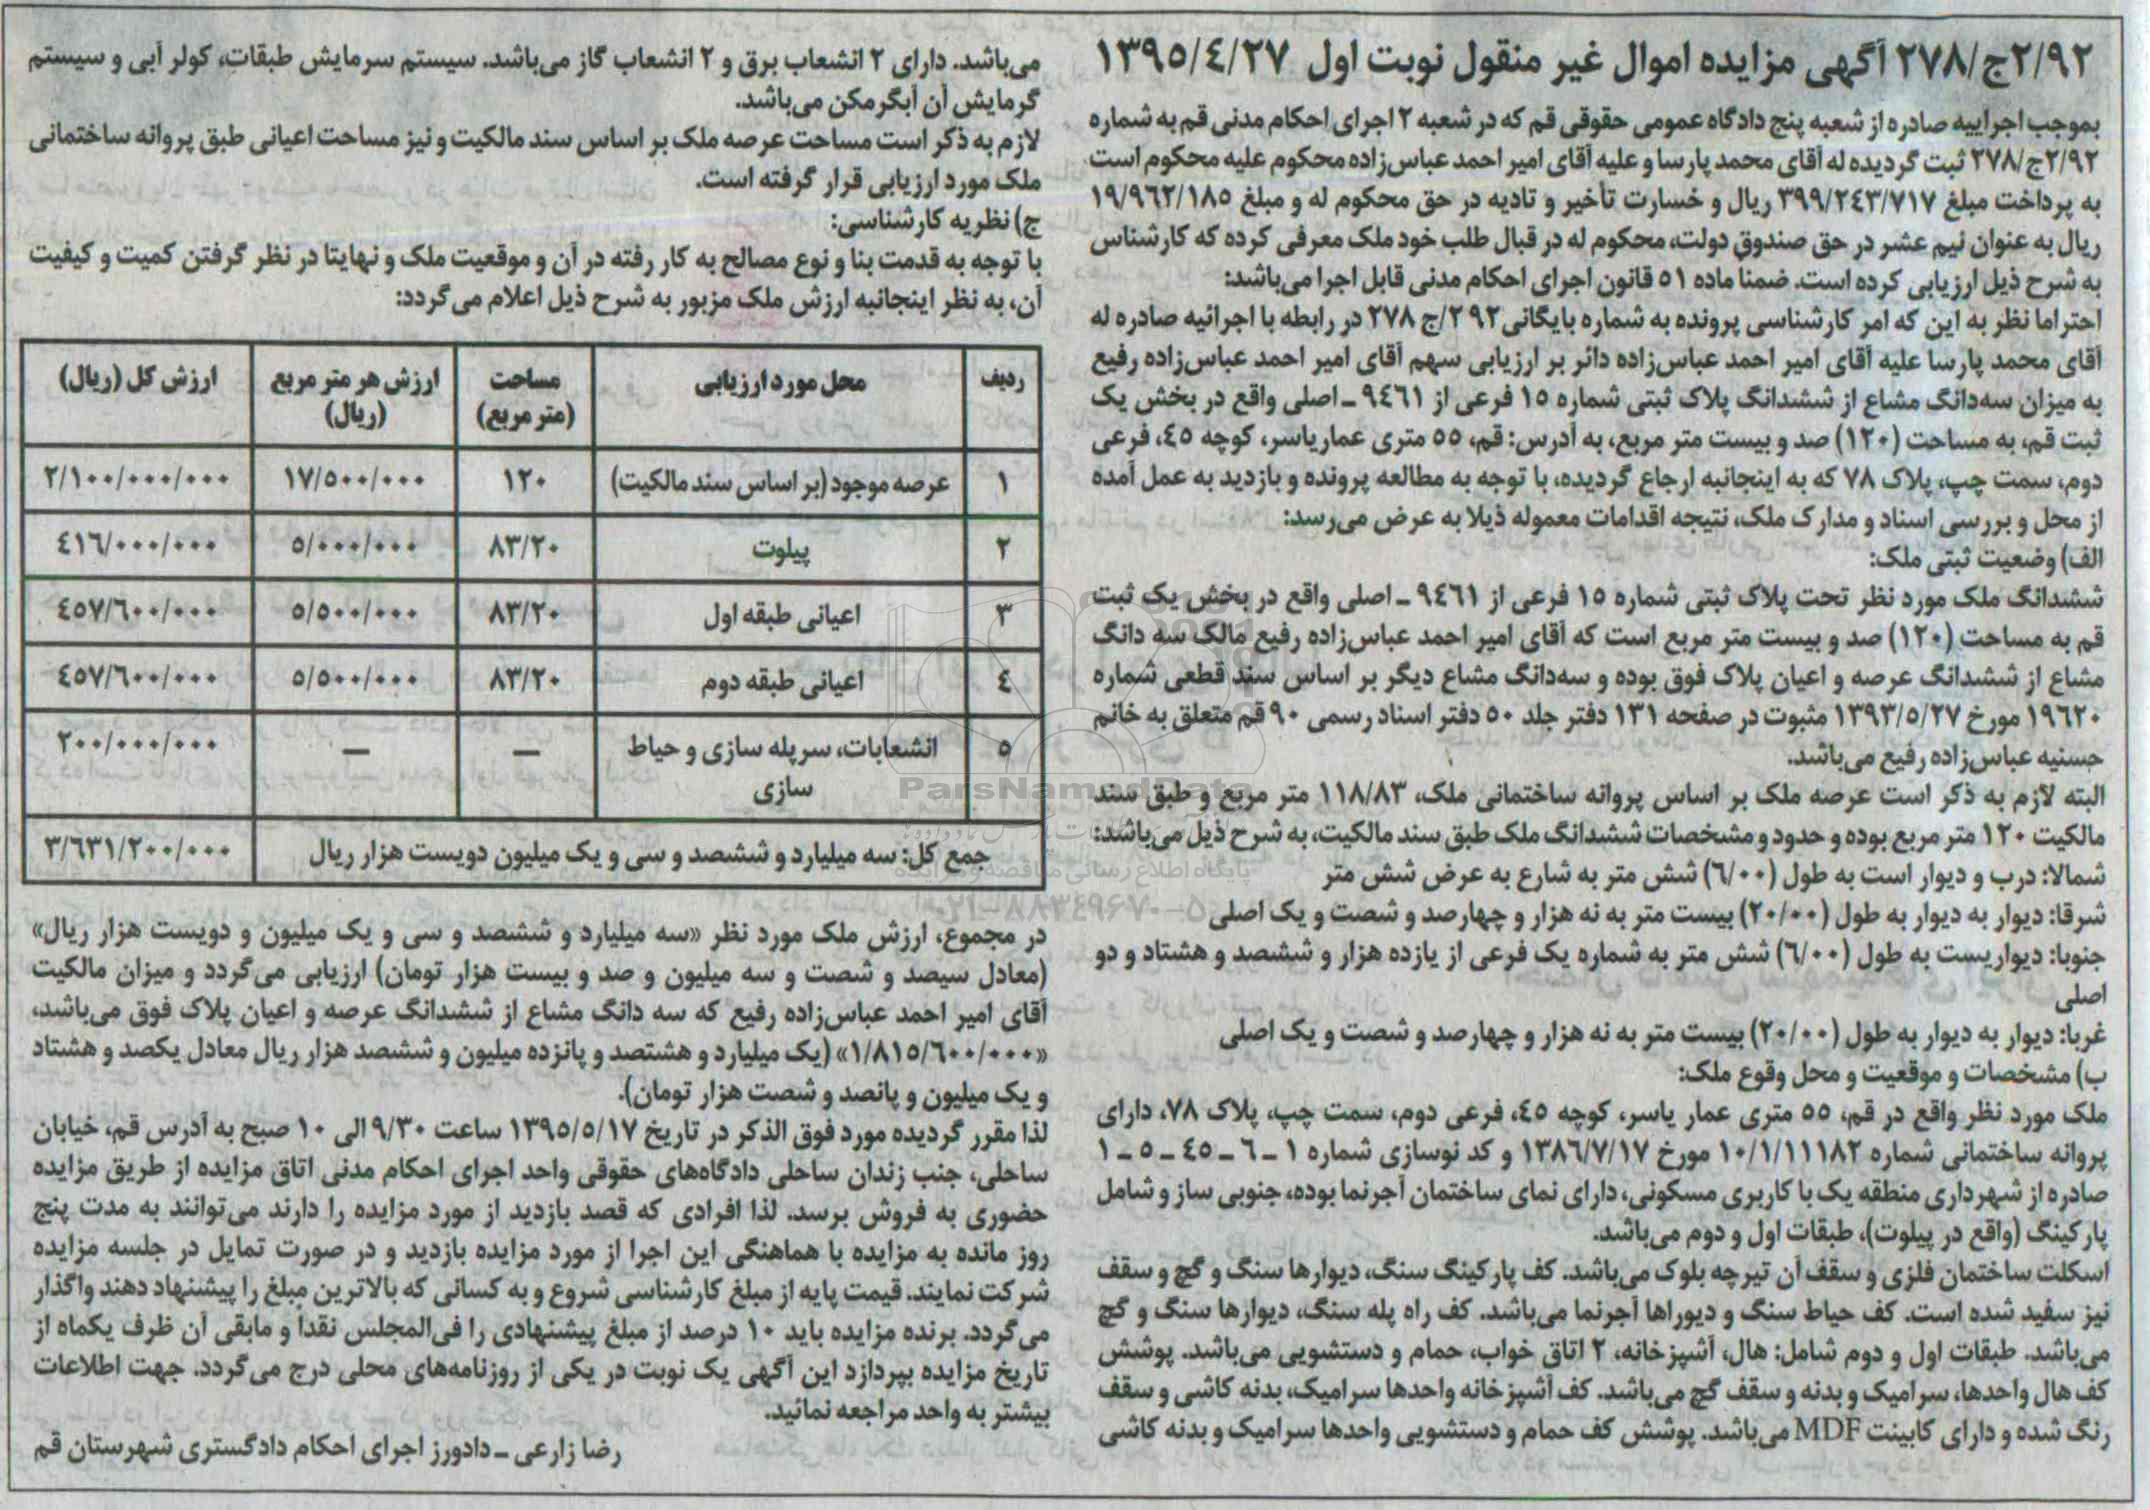 ۲/۹۲ج/۲۷۸ آگهی مزایده اموال غیر منقول نوبت اول ۱۳۹۵/۴/۲۷
بموجب اجراییه صادره از شعبه پنج دادگاه عمومی حقوقی قم که در شعبه ۲ اجرای احکام مدنی قم به شماره
۲/۹۲ج/۲۷۸ ثبت گردیده له آقای محمد پارسا و علیه آقای امیر احمد عباس‌زاده محکوم علیه محکوم است
به پرداخت مبلغ ۳۹۹/۲۴۳/۷۱۷ ریال و خسارت تأخیر و تادیه در حق محکوم له و مبلغ ۱۹/۹۶۲/۱۸۵
ریال به عنوان نیم عشر در حق صندوق دولت، محکوم له در قبال طلب خود ملک معرفی کرده که کارشناس
به شرح ذیل ارزیابی کرده است. ضمناً ماده ۵۱ قانون اجرای احکام مدنی قابل اجرا می‌باشد:
احتراما نظر به این که امر کارشناسی پرونده به شماره بایگانی ۲۹۲/ج ۲۷۸ در رابطه با اجرائیه صادره له
آقای محمد پارسا علیه آقای امیر احمد عباس‌زاده دائر بر ارزیابی سهم آقای امیر احمد عباس‌زاده رفیع
به میزان سه‌دانگ مشاع از ششدانگ پلاک ثبتی شماره ۱۵ فرعی از ۹۴۶۱ ـ اصلی واقع در بخش یک
ثبت قم، به مساحت (۱۲۰) صد و بیست متر مربع، به آدرس: قم، ۵۵ متری عماریاسر، کوچه ۴۵، فرعی
دوم، سمت چپ، پلاک ۷۸ که به اینجانبه ارجاع گردیده، با توجه به مطالعه پرونده و بازدید به عمل آمده
از محل و بررسی اسناد و مدارک ملک، نتیجه اقدامات معموله ذیلا به عرض می‌رسد:
الف) وضعیت ثبتی ملک:
ششدانگ ملک مورد نظر تحت پلاک ثبتی شماره ۱۵ فرعی از ۹۴۶۱ ـ اصلی واقع در بخش یک ثبت
قم به مساحت (۱۲۰) صد و بیست متر مربع است که آقای امیر احمد عباس‌زاده رفیع مالک سه دانگ
مشاع از ششدانگ عرصه و اعیان پلاک فوق بوده و سه‌دانگ مشاع دیگر بر اساس سند قطعی شماره
۱۹۶۲۰ مورخ ۱۳۹۳/۵/۲۷ مثبوت در صفحه ۱۳۱ دفتر جلد ۵۰ دفتر اسناد رسمی ۹۰ قم متعلق به خانم
حسنیه عباس‌زاده رفیع می‌باشد.
البته لازم به ذکر است عرصه ملک بر اساس پروانه ساختمانی ملک، ۱۱۸/۸۳ متر مربع و طبق سند
مالکیت ۱۲۰ متر مربع بوده و حدود و مشخصات ششدانگ ملک طبق سند مالکیت، به شرح ذیل می‌باشد:
شمالا: درب و دیوار است به طول (۶/۰۰) شش متر به شارع به عرض شش متر
شرقا: دیوار به دیوار به طول (۲۰/۰۰) بیست متر به نه هزار و چهارصد و شصت و یک اصلی
جنوبا: دیواریست به طول (۶/۰۰) شش متر به شماره یک فرعی از یازده هزار و ششصد و هشتاد و دو
اصلی
غربا: دیوار به دیوار به طول (۲۰/۰۰) بیست متر به نه هزار و چهارصد و شصت و یک اصلی
ب) مشخصات و موقعیت و محل وقوع ملک:
ملک مورد نظر واقع در قم، ۵۵ متری عمار یاسر، کوچه ۴۵، فرعی دوم، سمت چپ، پلاک ۷۸، دارای
پروانه ساختمانی شماره ۱۰/۱/۱۱۱۸۲ مورخ ۱۳۸۶/۷/۱۷ و کد نوسازی شماره ۱ ـ ۶ ـ ۴۵ ـ ۵ ـ ۱
صادره از شهرداری منطقه یک با کاربری مسکونی، دارای نمای ساختمان آجرنما بوده، جنوبی ساز و شامل
پارکینگ (واقع در پیلوت)، طبقات اول و دوم می‌باشد.
اسکلت ساختمان فلزی و سقف آن تیرچه بلوک می‌باشد. کف پارکینگ سنگ، دیوارها سنگ و گچ و سقف
نیز سفید شده است. کف حیاط سنگ و دیوراها آجرنما می‌باشد. کف راه پله سنگ، دیوارها سنگ و گچ
می‌باشد. طبقات اول و دوم شامل: هال، آشپزخانه، ۲ اتاق خواب، حمام و دستشویی می‌باشد. پوشش
کف هال واحدها، سرامیک و بدنه و سقف گچ می‌باشد. کف آشپزخانه واحدها سرامیک، بدنه کاشی و سقف
رنگ شده و دارای کابینت MDF می‌باشد. پوشش کف حمام و دستشویی واحدها سرامیک و بدنه کاشی
می‌باشد. دارای ۲ انشعاب برق و ۲ انشعاب گاز می‌باشد. سیستم سرمایش طبقات، کولر آبی و سیستم
گرمایش آن آبگرمکن می‌باشد.
لازم به ذکر است مساحت عرصه ملک بر اساس سند مالکیت و نیز مساحت اعیانی طبق پروانه ساختمانی
ملک مورد ارزیابی قرار گرفته است.
ج) نظریه کارشناسی:
با توجه به قدمت بنا و نوع مصالح به کار رفته در آن و موقعیت ملک و نهایتا در نظر گرفتن کمیت و کیفیت
آن، به نظر اینجانبه ارزش ملک مزبور به شرح ذیل اعلام می‌گردد:
ردیف محل مورد ارزیابی مساحت (متر مربع) ارزش هر متر مربع (ریال) ارزش کل (ریال)
۱ عرصه موجود (بر اساس سند مالکیت) ۱۲۰ ۱۷/۵۰۰/۰۰۰ ۲/۱۰۰/۰۰۰/۰۰۰
۲ پیلوت ۸۳/۲۰ ۵/۰۰۰/۰۰۰ ۴۱۶/۰۰۰/۰۰۰
۳ اعیانی طبقه اول ۸۳/۲۰ ۵/۵۰۰/۰۰۰ ۴۵۷/۶۰۰/۰۰۰
۴ اعیانی طبقه دوم ۸۳/۲۰ ۵/۵۰۰/۰۰۰ ۴۵۷/۶۰۰/۰۰۰
۵ انشعابات، سرپله سازی و حیاط سازی — — ۲۰۰/۰۰۰/۰۰۰
جمع کل: سه میلیارد و ششصد و سی و یک میلیون دویست هزار ریال ۳/۶۳۱/۲۰۰/۰۰۰
در مجموع، ارزش ملک مورد نظر «سه میلیارد و ششصد و سی و یک میلیون و دویست هزار ریال»
(معادل سیصد و شصت و سه میلیون و صد و بیست هزار تومان) ارزیابی می‌گردد و میزان مالکیت
آقای امیر احمد عباس‌زاده رفیع که سه دانگ مشاع از ششدانگ عرصه و اعیان پلاک فوق می‌باشد،
«۱/۸۱۵/۶۰۰/۰۰۰» (یک میلیارد و هشتصد و پانزده میلیون و ششصد هزار ریال معادل یکصد و هشتاد
و یک میلیون و پانصد و شصت هزار تومان).
لذا مقرر گردیده مورد فوق الذکر در تاریخ ۱۳۹۵/۵/۱۷ ساعت ۹/۳۰ الی ۱۰ صبح به آدرس قم، خیابان
ساحلی، جنب زندان ساحلی دادگاه‌های حقوقی واحد اجرای احکام مدنی اتاق مزایده از طریق مزایده
حضوری به فروش برسد. لذا افرادی که قصد بازدید از مورد مزایده را دارند می‌توانند به مدت پنج
روز مانده به مزایده با هماهنگی این اجرا از مورد مزایده بازدید و در صورت تمایل در جلسه مزایده
شرکت نمایند. قیمت پایه از مبلغ کارشناسی شروع و به کسانی که بالاترین مبلغ را پیشنهاد دهند واگذار
می‌گردد. برنده مزایده باید ۱۰ درصد از مبلغ پیشنهادی را فی‌المجلس نقداً و مابقی آن ظرف یکماه از
تاریخ مزایده بپردازد این آگهی یک نوبت در یکی از روزنامه‌های محلی درج می‌گردد. جهت اطلاعات
بیشتر به واحد مراجعه نمائید.
رضا زارعی ـ دادورز اجرای احکام دادگستری شهرستان قم
ParsNamadData
پایگاه اطلاع رسانی مناقصه و مزایده
۰۲۱-۸۸۳۴۹۶۷۰-۵